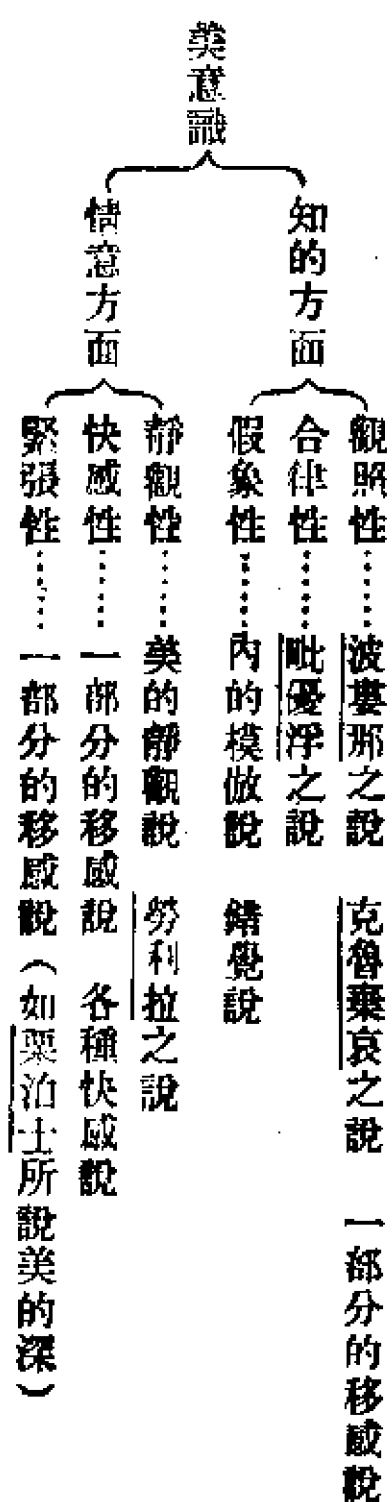 美意識
知的方面
觀照性……波婁那之說　克魯棄哀之說　一部分的移感說
合律性……毗優浮之說
假象性……內的模倣說　錯覺說
情意方面
靜觀性……美的靜觀說　勞利拉之說
快感性……一部分的移感說　各種快感說
緊張性……一部分的移感說（如栗泊士所說美的深）